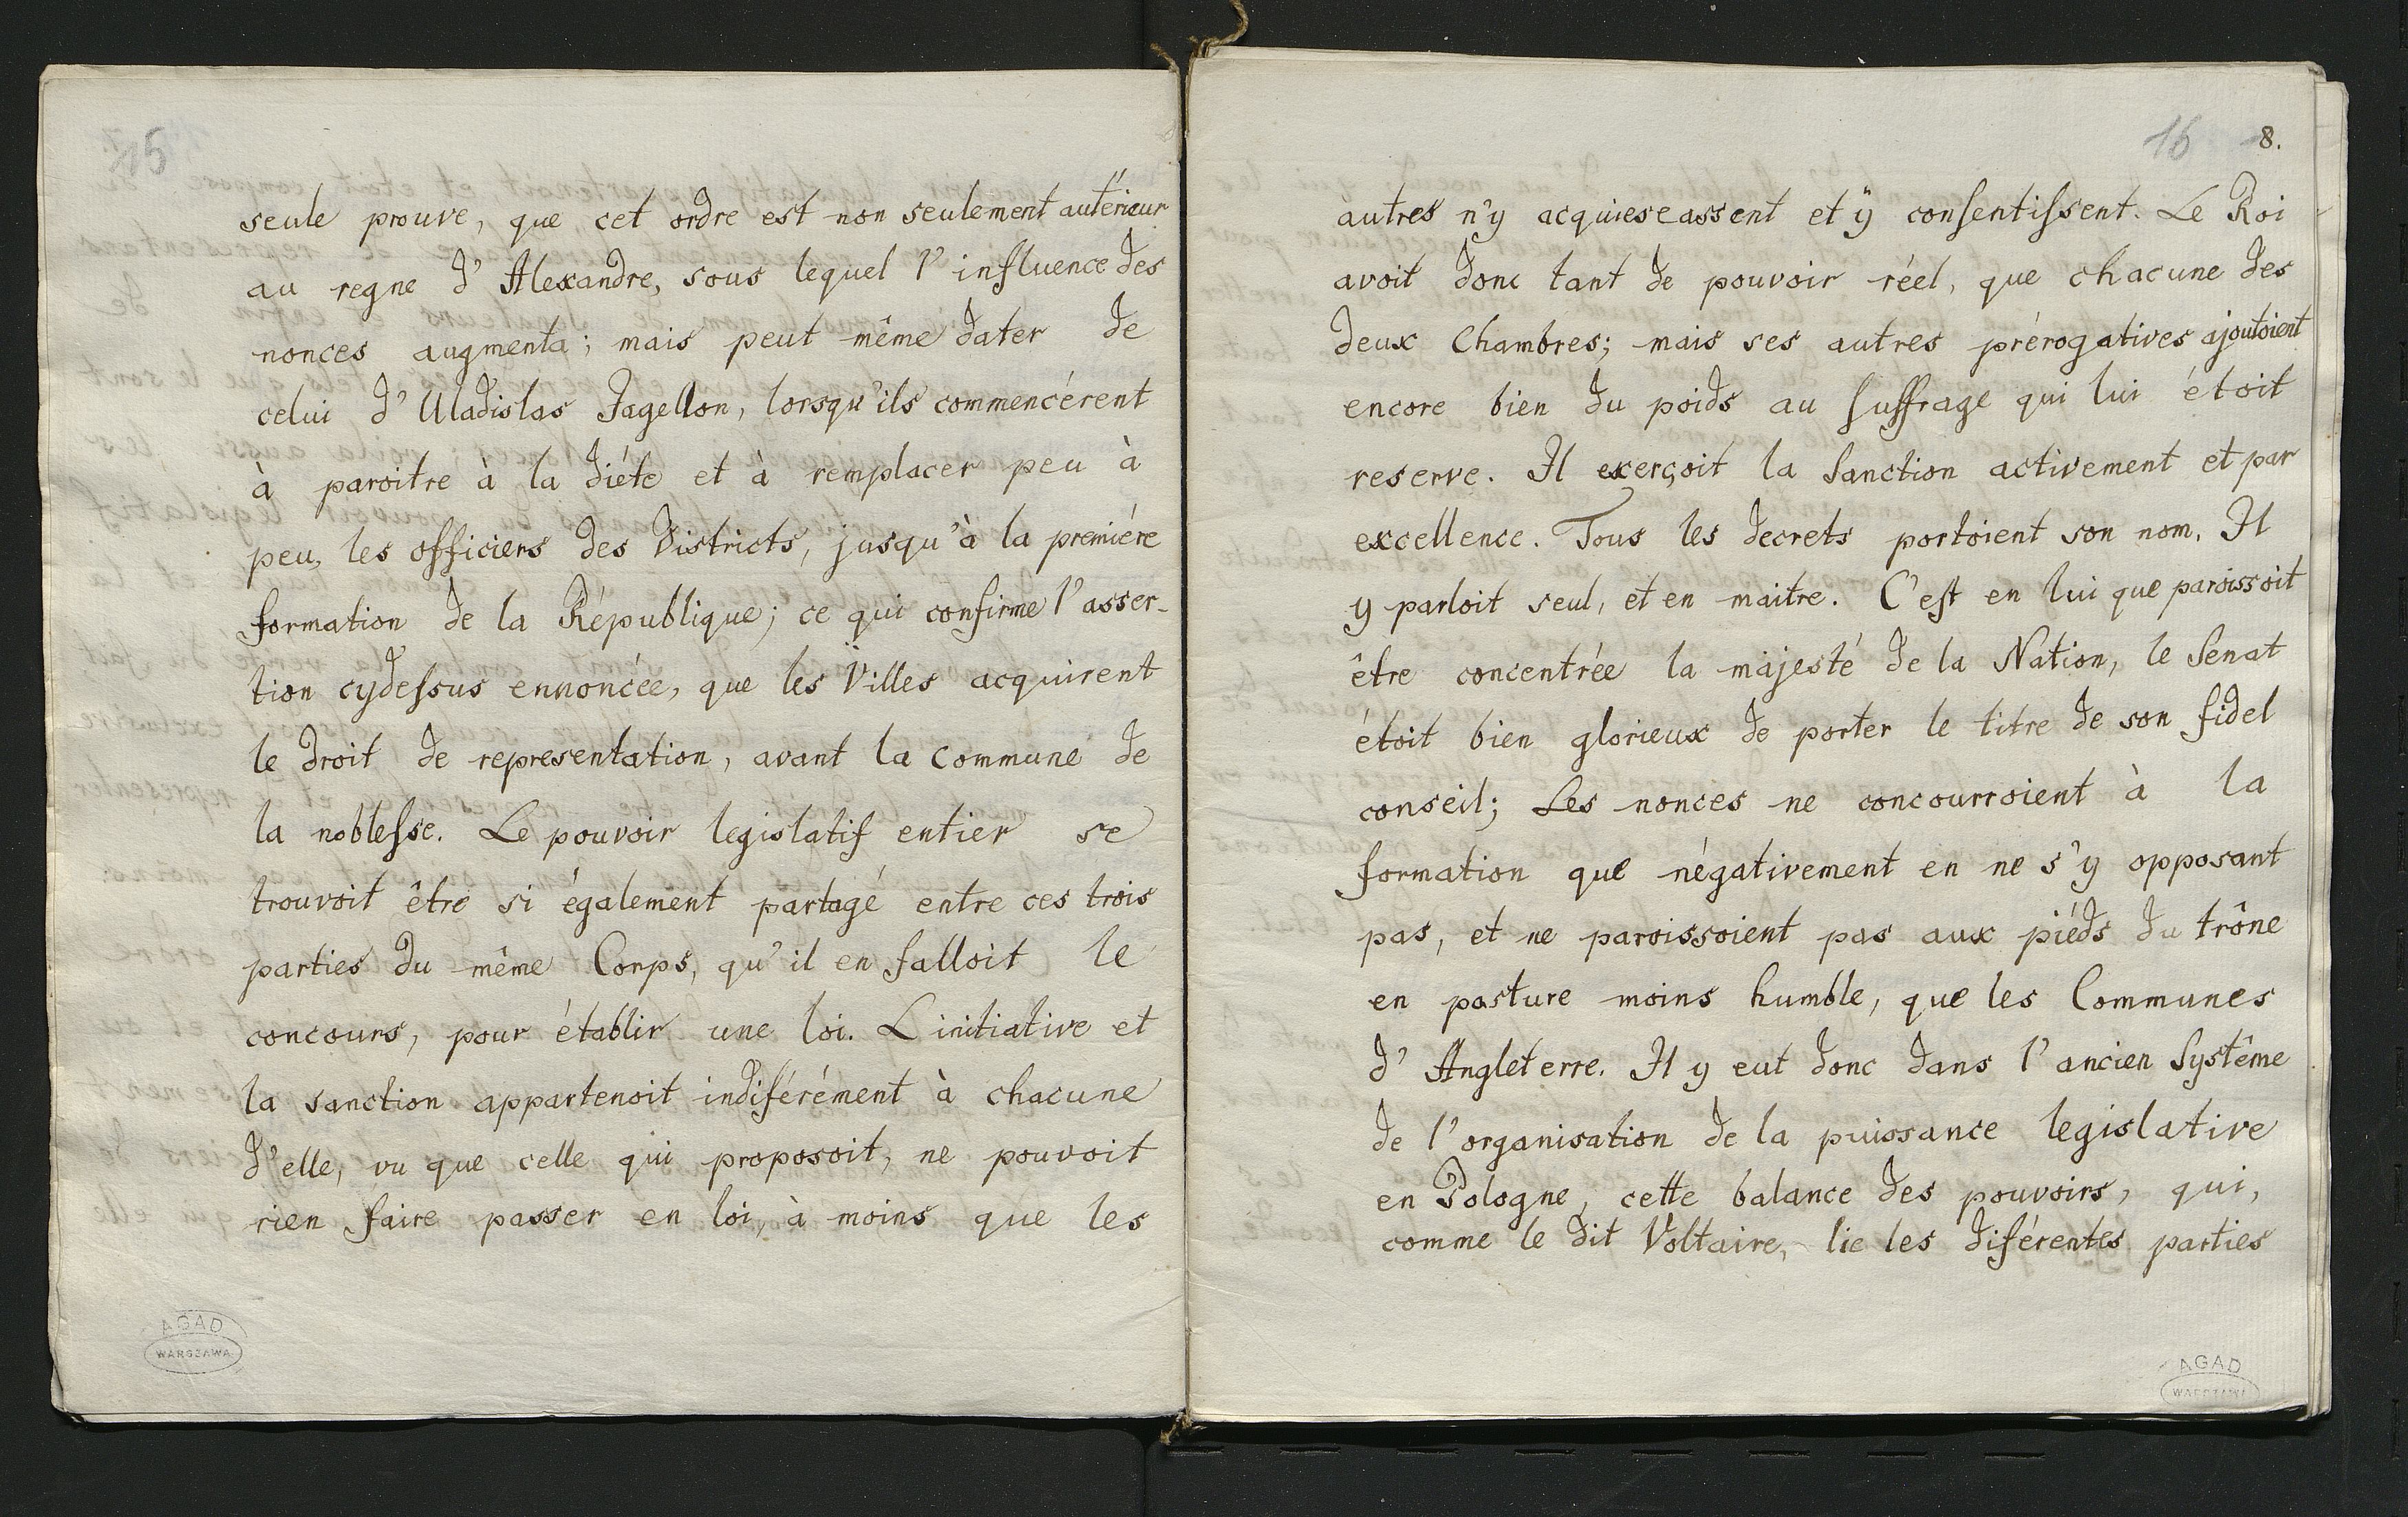 15
seule prouve, que cet ordre est non seulement autérieur
au regne d'Alexandre, sous lequel l'influence des
nonces augmenta; mais peut même dater de
celui d'Uladislas Jagellon, lorsqu'ils commencérent
à paroitre à la diéte et à remplacer peu à
peu, les officiers des Districts, jusqu'à la premiére
formation de la République; ce qui confirme l'asser-
tion cydeſsus ennoncée, que les Villes acquirent
le droit de representation, avant la commune de
la nobleſse. Le pouvoir legislatif entier se
trouvoit être si également partagé entre ces trois
parties du même Corps, qu'il en falloit le
concours, pour établir une loi. L'initiative et
la sanction appartenoit indiférément à chacune
d'elle, vu que celle qui proposoit, ne pouvoit
rien faire passer en loi, à moins que les
AGAD
WARSZAWA
16 8.
autres n'y acquieseassent et ÿ conſentiſsent. Le Roi
avoit donc tant de pouvoir réel, que chacune des
deux Chambres; mais ses autres prérogatives ajoutoient
encore bien du poids au ſuffrage qui lui étoit
reserve. Il exerçoit la Sanction activement et par
excellence. Tous les decrets portoient son nom. Il
y parloit seul, et en maitre. C'eſt en lui que paroissoit
être concentrée la majesté de la Nation, le Senat
étoit bien glorieux de porter le titre de son fidel
conseil; Les nonces ne concourroient à la
formation que négativement en ne s'y opposant
pas, et ne paroissoient pas aux piéds du trône
en posture moins humble, que les Communes
d'Angleterre. Il y eut donc dans l'ancien Systême
de l'organisation de la puissance legislative
en Pologne, cette balance des pouvoirs, qui,
comme le dit Voltaire, lie les diférentes parties
AGAD
WARSZAWA